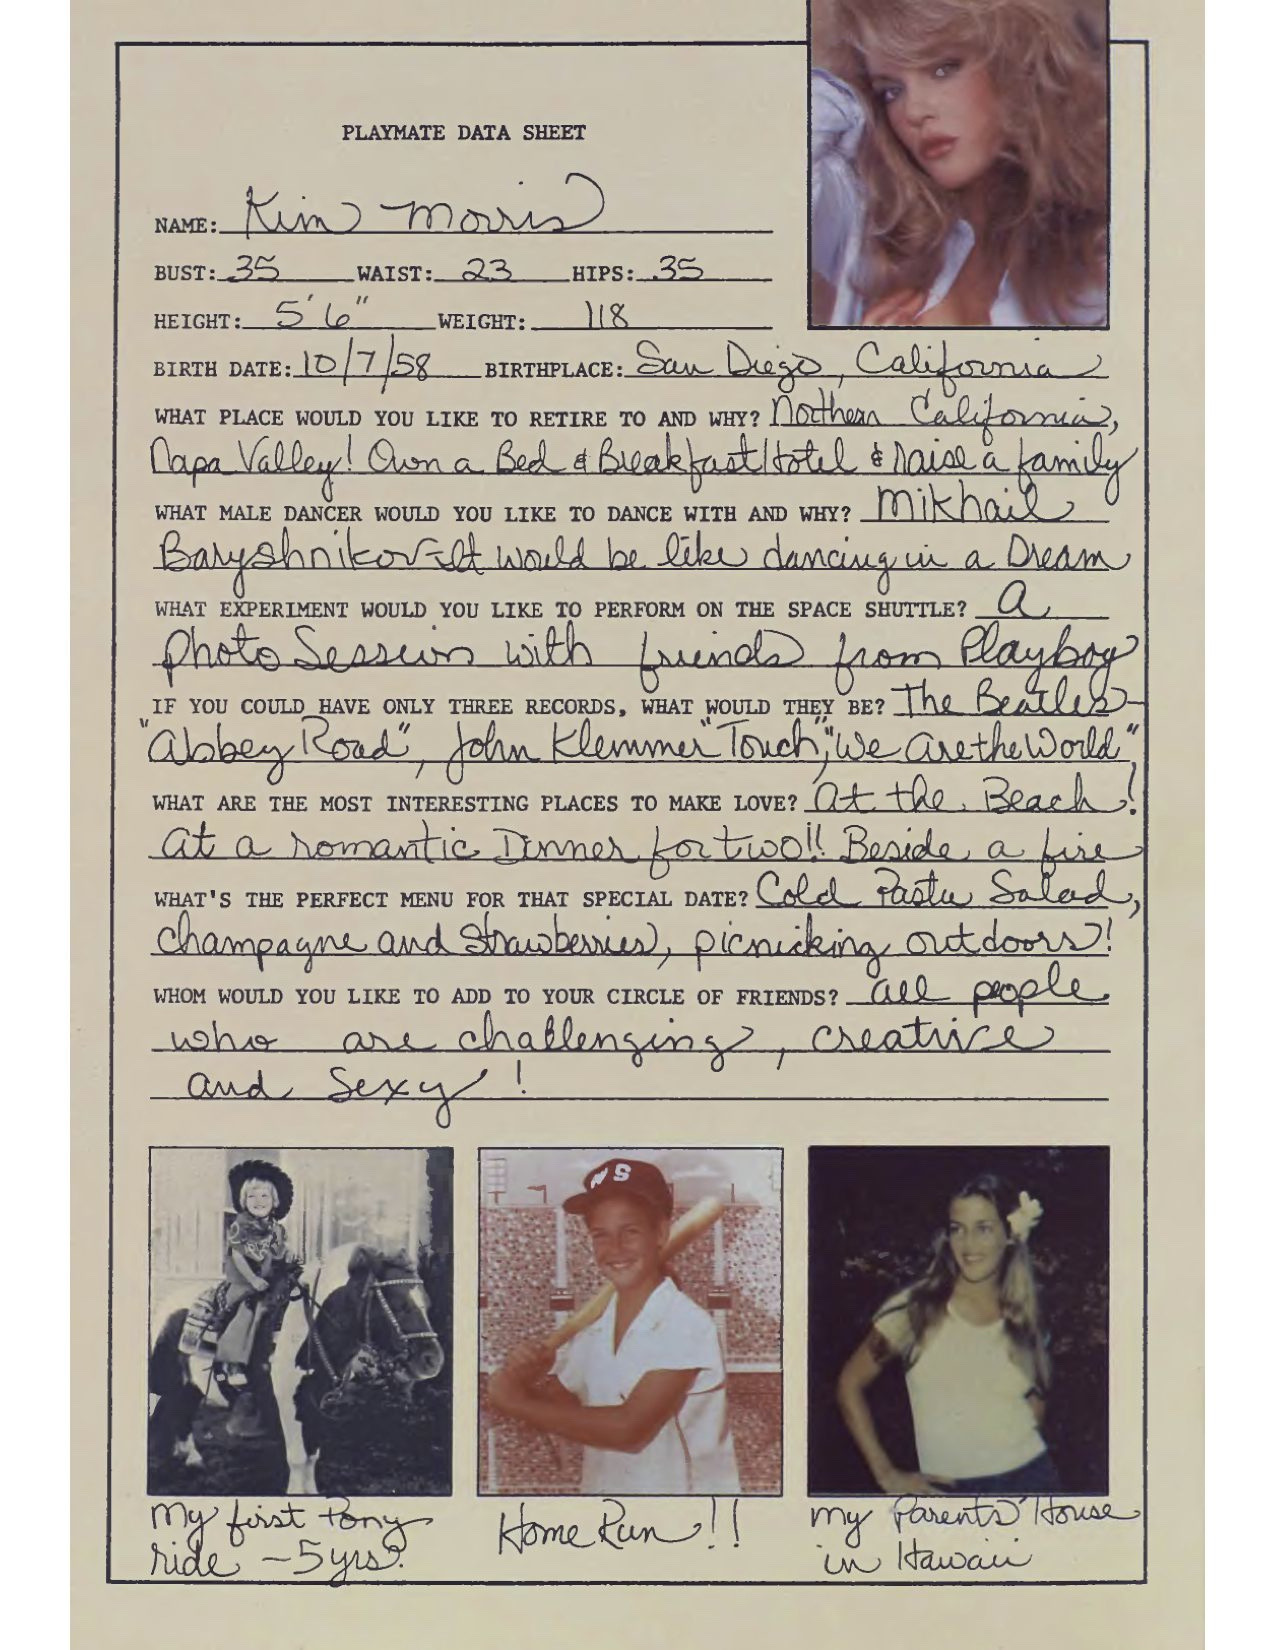 PLAYMATE DATA SHEET
NAME: Kim Morris
BUST: 35 WAIST: 23 HIPS: 35
HEIGHT: 5'6" WEIGHT: 118
BIRTH DATE: 10/7/58 BIRTHPLACE: San Diego, California
WHAT PLACE WOULD YOU LIKE TO RETIRE TO AND WHY? Northern California,
Napa Valley! Own a Bed & Breakfast Hotel & Raise a family
WHAT MALE DANCER WOULD YOU LIKE TO DANCE WITH AND WHY? Mikhail
Baryshnikov-It would be like dancing in a Dream
WHAT EXPERIMENT WOULD YOU LIKE TO PERFORM ON THE SPACE SHUTTLE? A
photo Session with friends from Playboy
IF YOU COULD HAVE ONLY THREE RECORDS, WHAT WOULD THEY BE? The Beatles-
"Abbey Road", John Klemmer "Touch", "We Are the World"
WHAT ARE THE MOST INTERESTING PLACES TO MAKE LOVE? At the Beach!
At a romantic Dinner for two!! Beside a fire
WHAT'S THE PERFECT MENU FOR THAT SPECIAL DATE? Cold Pasta Salad,
champagne and Strawberries, picnicking outdoors!
WHOM WOULD YOU LIKE TO ADD TO YOUR CIRCLE OF FRIENDS? All people
who are challenging, creative
and sexy!
WS
My first Pony
ride - 5 yrs.
Home Run!!
my Parents' House
in Hawaii